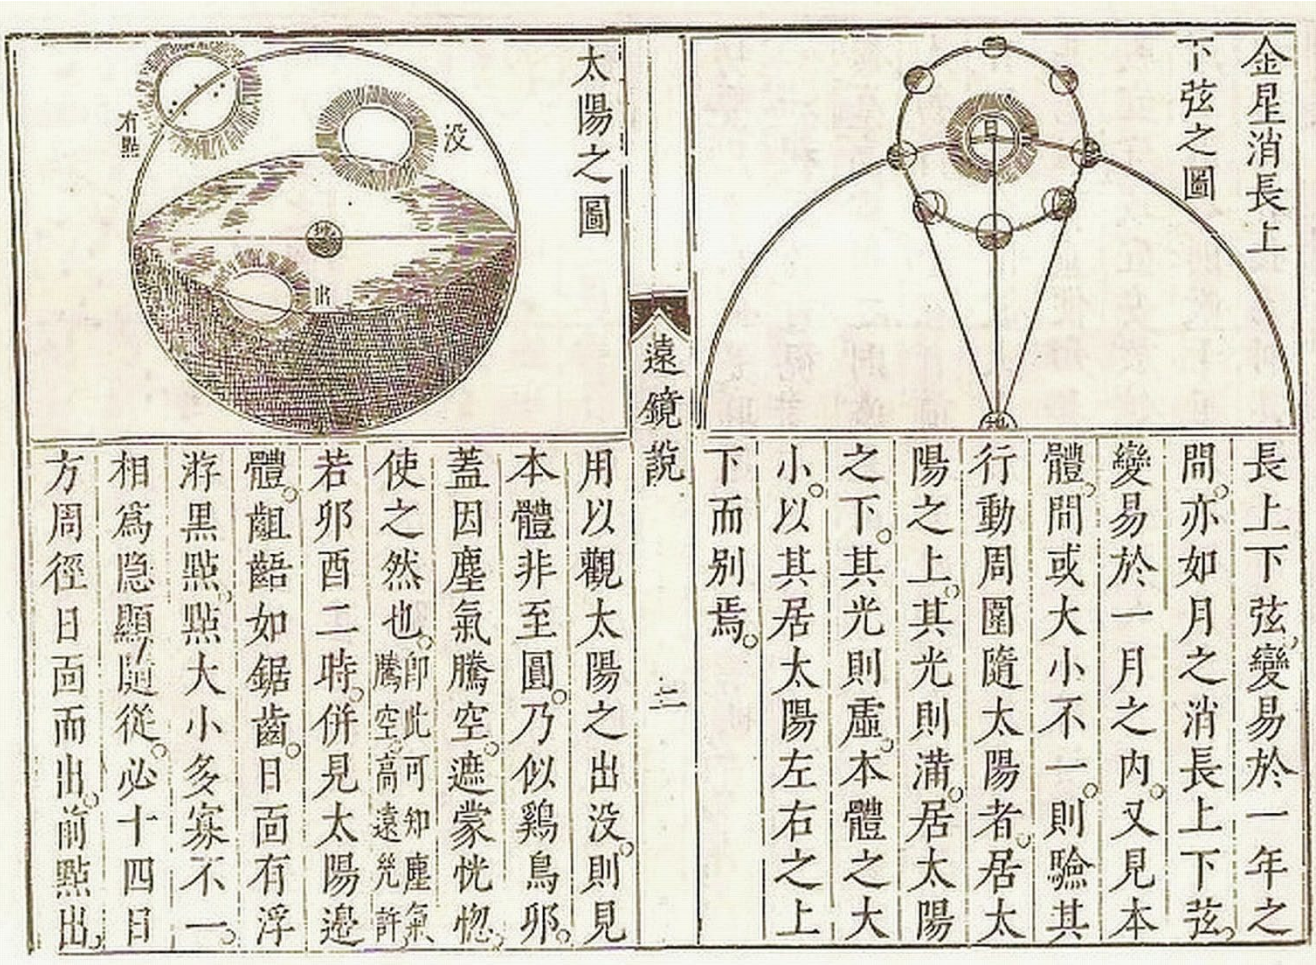 金星消長上
下弦之圖
日
地
長上下弦變易於一年之
間亦如月之消長上下弦
變易於一月之內又見本
體間或大小不一則驗其
行動周圍隨太陽者居太
陽之上其光則滿居太陽
之下其光則虛本體之大
小以其居太陽左右之上
下而別焉
遠鏡說
二
太陽之圖
沒
有點
地
出
用以觀太陽之出沒則見
本體非至圓乃似鷄鳥卵
蓋因塵氣騰空遮蒙恍惚
使之然也卽此可知塵氣
騰空高遠幾許
若卯酉二時併見太陽邊
體齟齬如鋸齒日面有浮
游黑點點大小多寡不一
相爲隱顯隨從必十四日
方周徑日面而出前點出